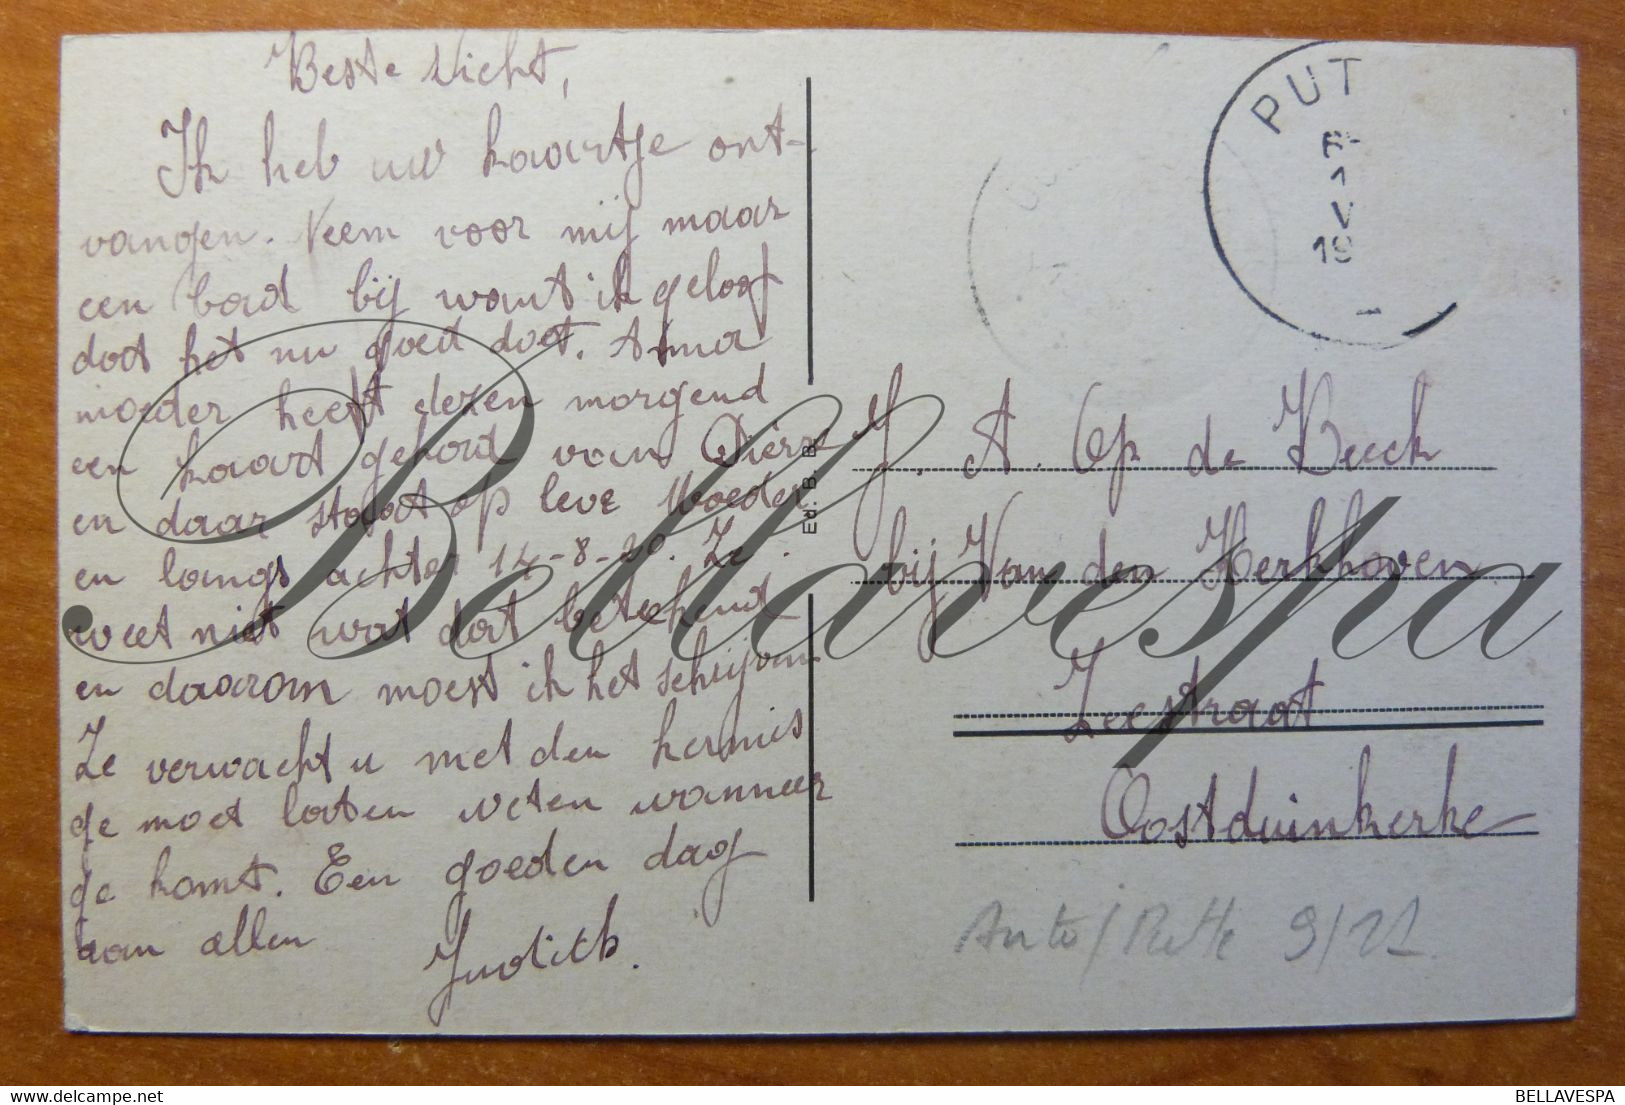 Beste Nicht,
Ik heb uw kaartje ont-
vangen. Neem voor mij maar
een bad bij want ik geloof
dat het nu goed doet. Anna
moeder heeft dezen morgend
een kaart gehad van
en daar staat op leve Moeder
en langs achter 14-8-20. Ze
weet niet wat dat beteekend
en daarom moest ik het schrijven
Ze verwacht u met den kermis
ge moet laten weten wanneer
ge komt. Een goeden dag
aan allen Judith.
Ed. B. B.
PUT
1
V
19
J. A. Op de Beeck
bij Van den Kerkhoven
Zeestraat
Oostduinkerke
9/21
Bellavespa
BELLAVESPA